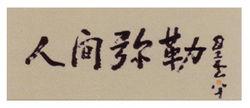 人间弥勒